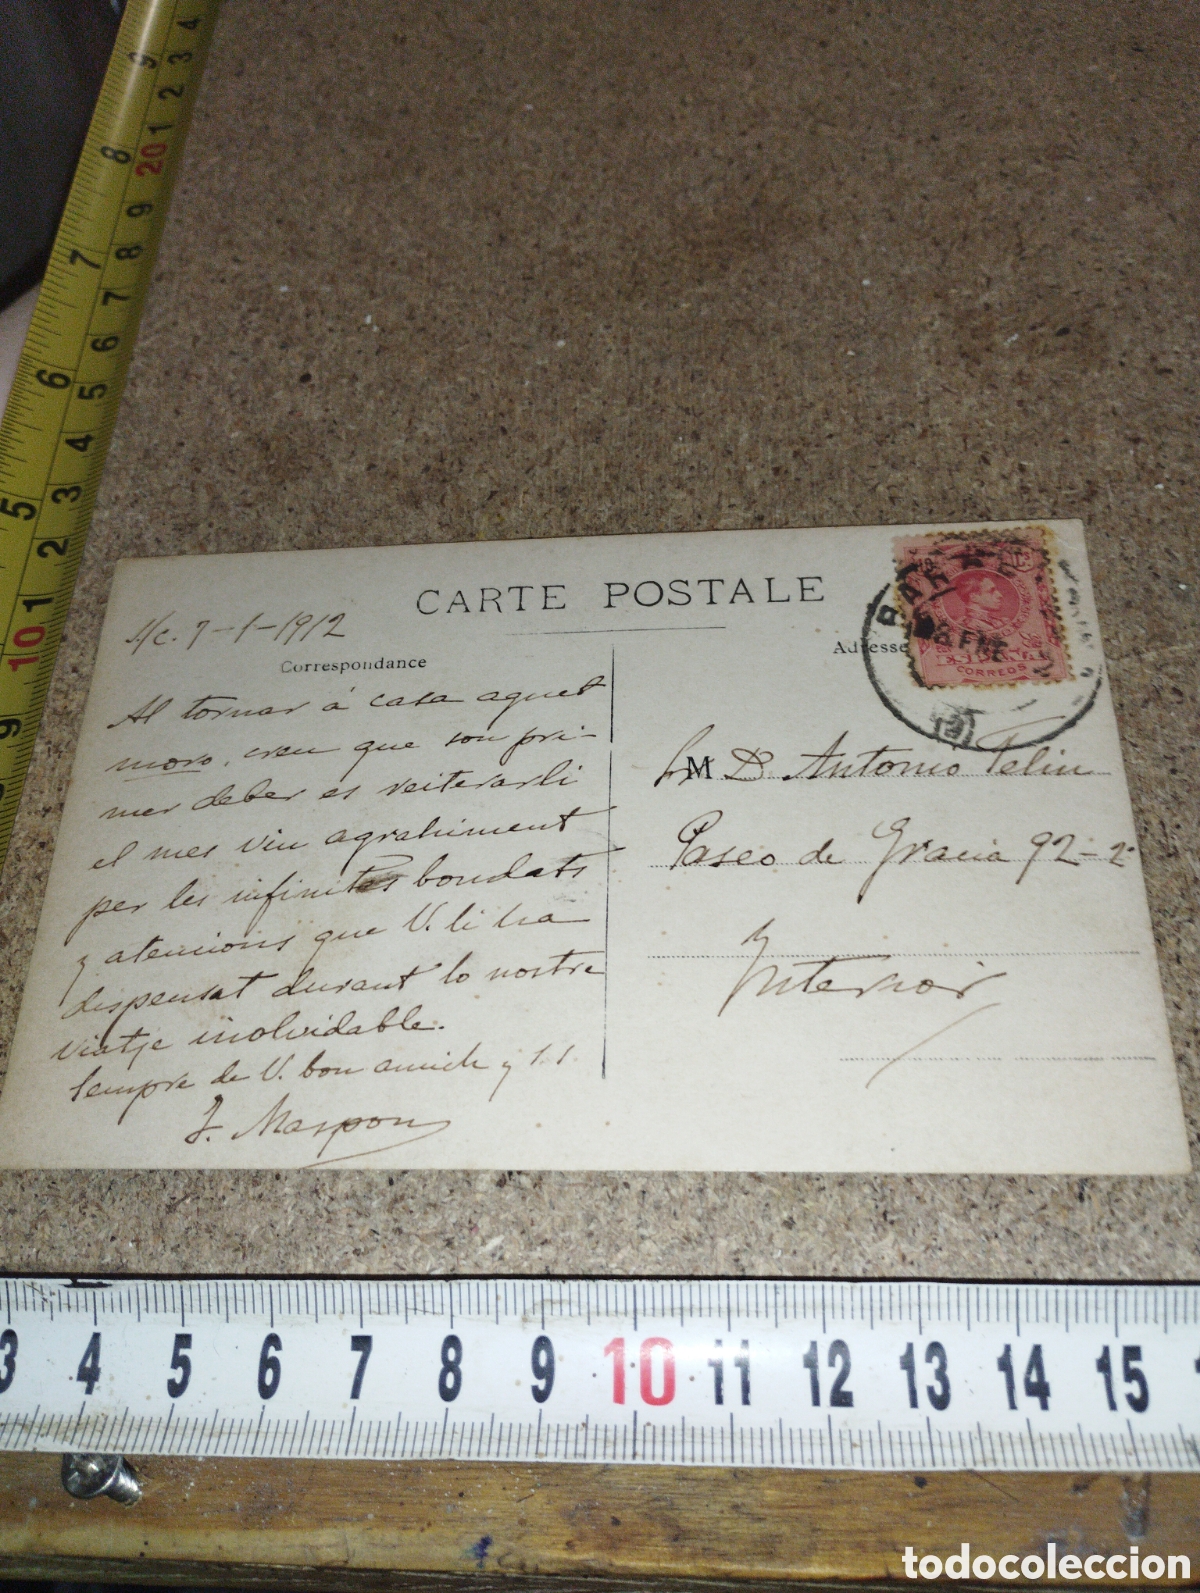 CARTE POSTALE
S/c. 7-1-1912
Correspondance
Al tornar á casa aquet
moro, creu que son pri-
mer deber es reiterarli
el mes viu agrahiment
per les infinites bondats
y atencions que V. li ha
dispensat durant lo nostre
viatje inolvidable.
Sempre de V. bon amich y s.s.
J. Maspons
Adresse
CORREOS
BAR
8 ENE
M
Sr D. Antonio Feliu
Paseo de Gracia 92-2º
Interior
3 4 5 6 7 8 9 10 11 12 13 14 15
4 3 2 1 20 9 8 7 6 5 4 3 2 1 10 9
9 8 7 6 5
todocoleccion